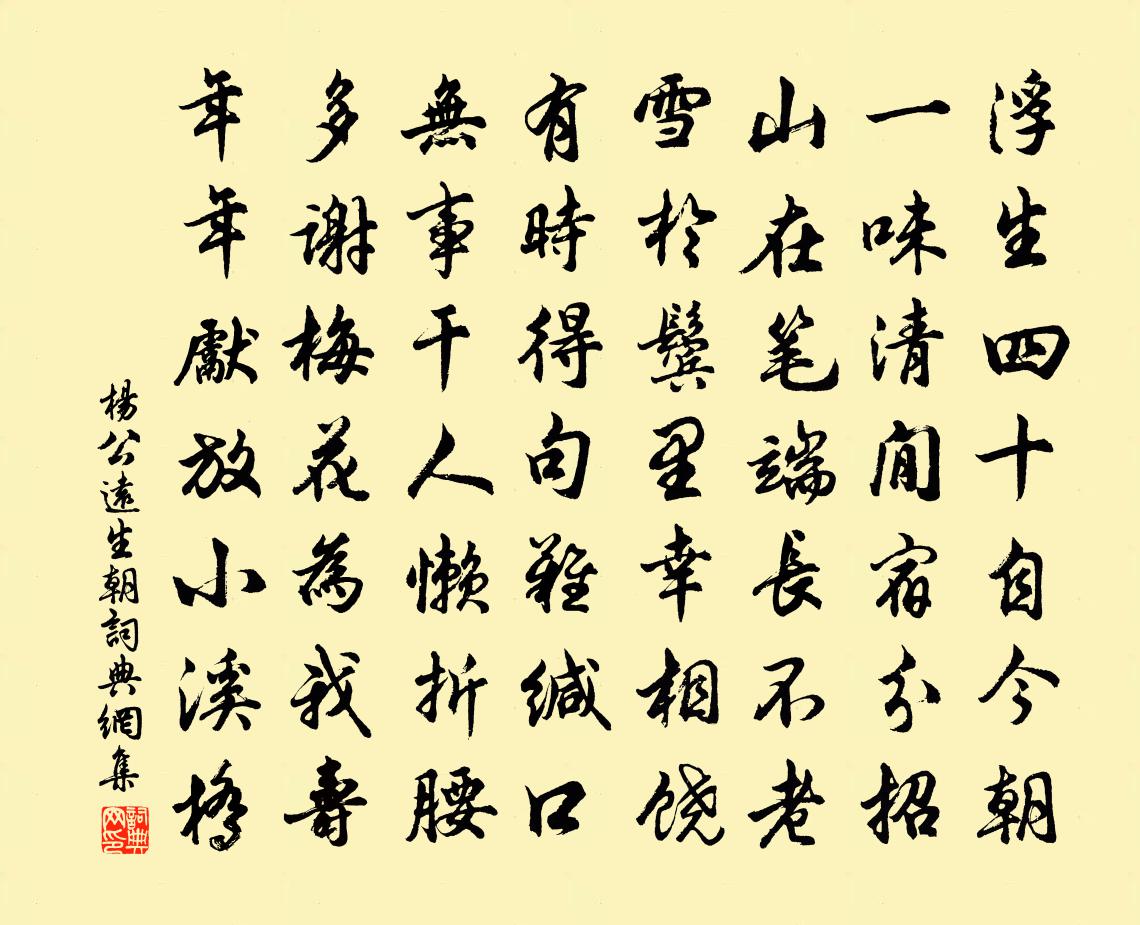 浮生四十自今朝
一味清閒宿分招
山在笔端長不老
雪於鬓里幸相饶
有時得句難緘口
無事干人懒折腰
多謝梅花為我壽
年年獻放小溪橋
楊公遠生朝詞典網集
詞典网印